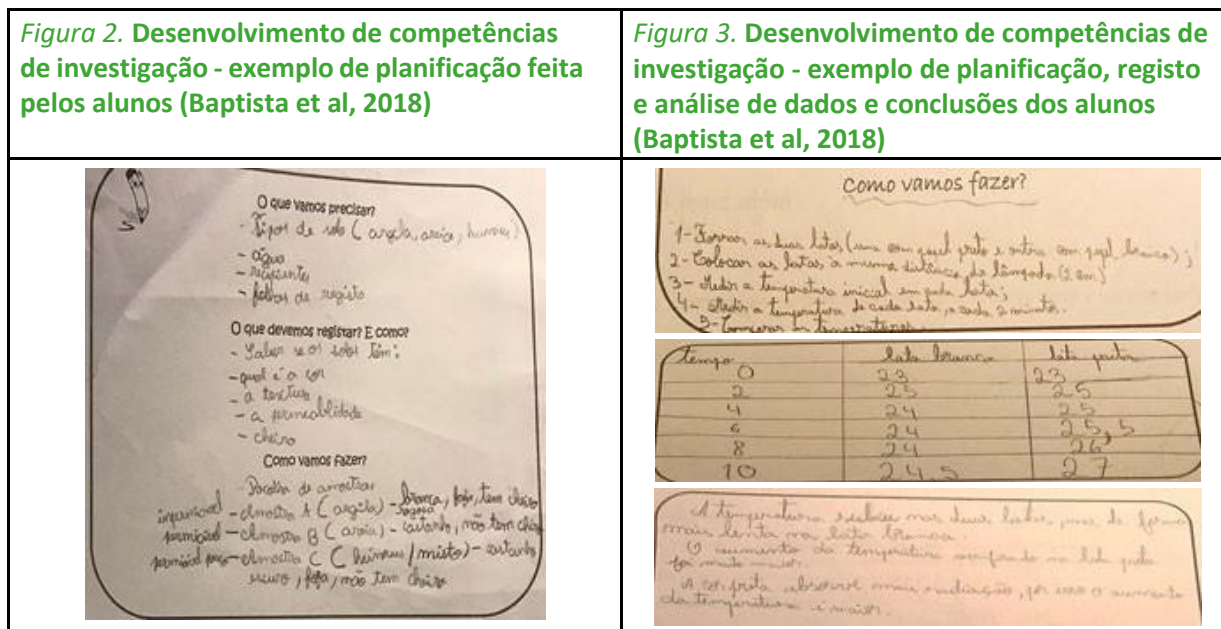 Figura 2. Desenvolvimento de competências
de investigação - exemplo de planificação feita
pelos alunos (Baptista et al, 2018)
O que vamos precisar?
- Tipos de solo (argila, areia, humus)
- água
- recipiente
- folhas de registo
O que devemos registar? E como?
- Saber se os solos têm:
- qual é a cor
- a textura
- a permeabilidade
- cheiro
Como vamos fazer?
- Recolha de amostras
- Amostra A (argila) - branca, fofa, tem cheiro
- Amostra B (areia) - castanho, não tem cheiro
- Amostra C (húmus/misto) - castanho
escuro, fofa, não tem cheiro
Figura 3. Desenvolvimento de competências de
investigação - exemplo de planificação, registo
e análise de dados e conclusões dos alunos
(Baptista et al, 2018)
Como vamos fazer?
1- Forrar as duas latas (uma com papel preto e outra com papel branco);
2- Colocar as latas à mesma distância da lâmpada (2 cm)
3- Medir a temperatura inicial em cada lata;
4- Medir a temperatura de cada lata, a cada 2 minutos.
5- Comparar as temperaturas.
tempo lata branca lata preta
0 23 23
2 25 25
4 24 25
6 24 25,5
8 24 26
10 24,5 27
A temperatura subiu nas duas latas, mas de forma
mais lenta na lata branca.
O aumento da temperatura verificado na lata preta
foi muito maior.
A cor preta absorve mais radiação, por isso o aumento
da temperatura é maior.